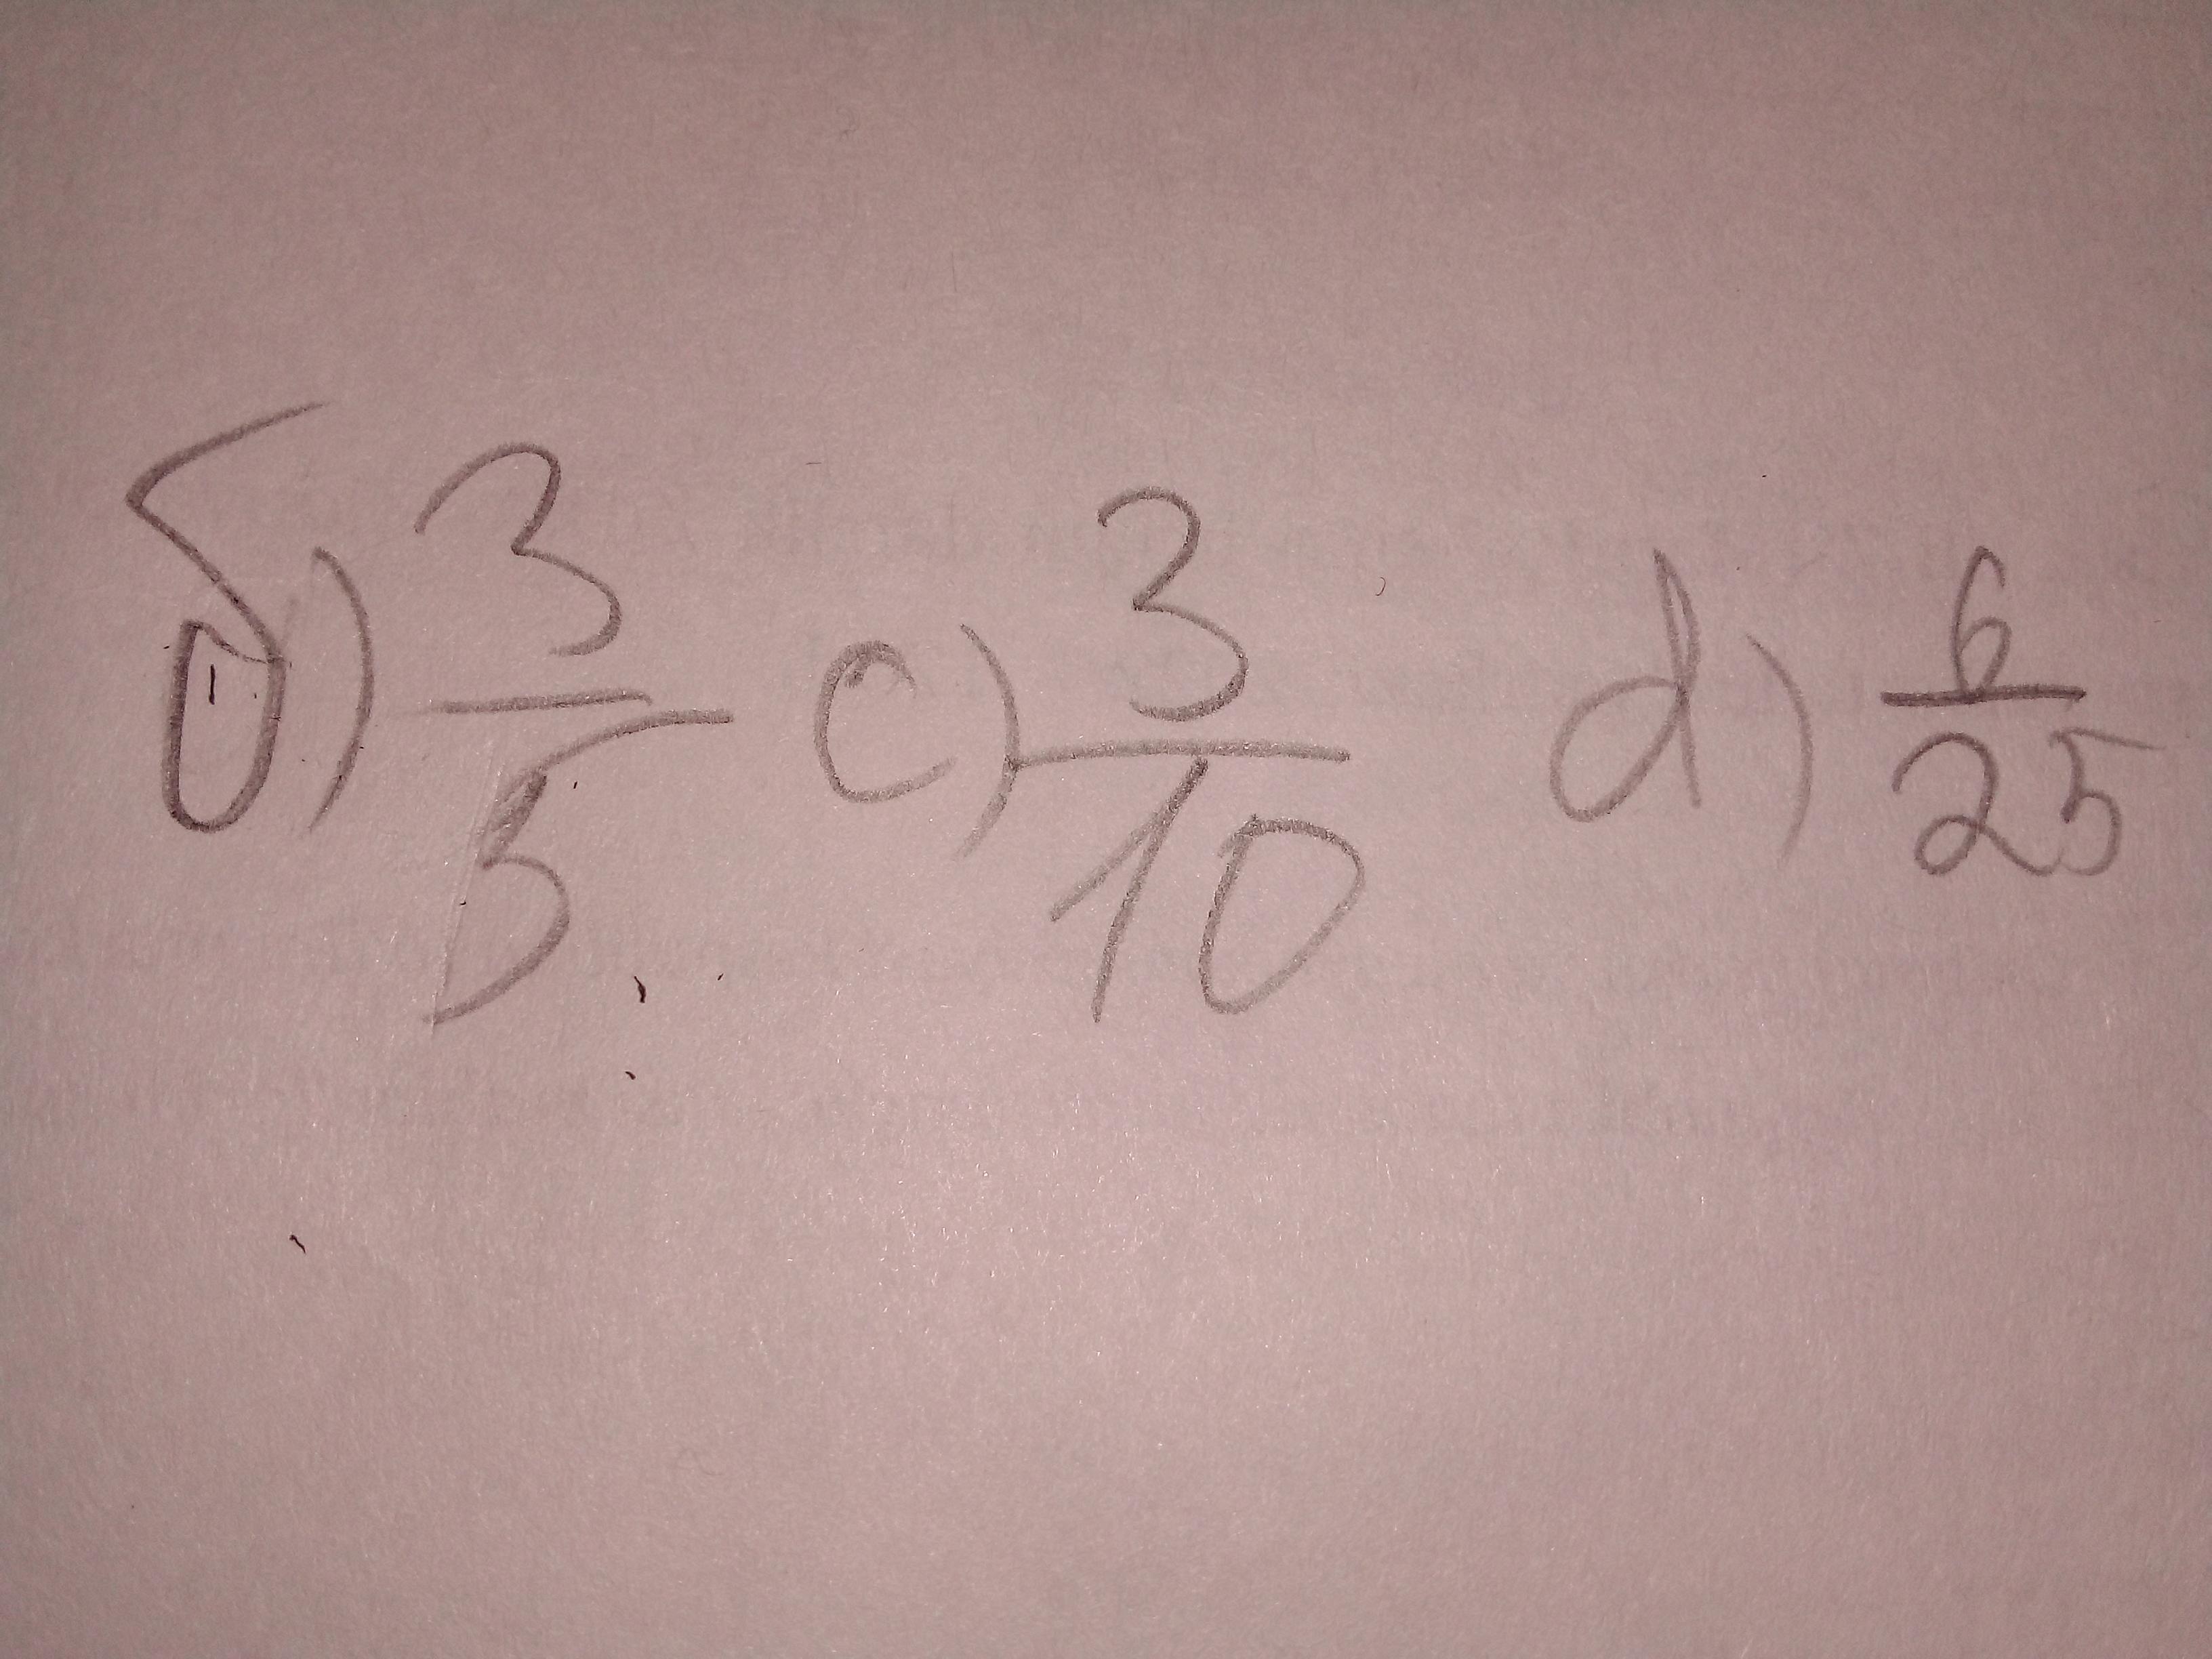 б) 3/5 c) 3/10 d) 6/25